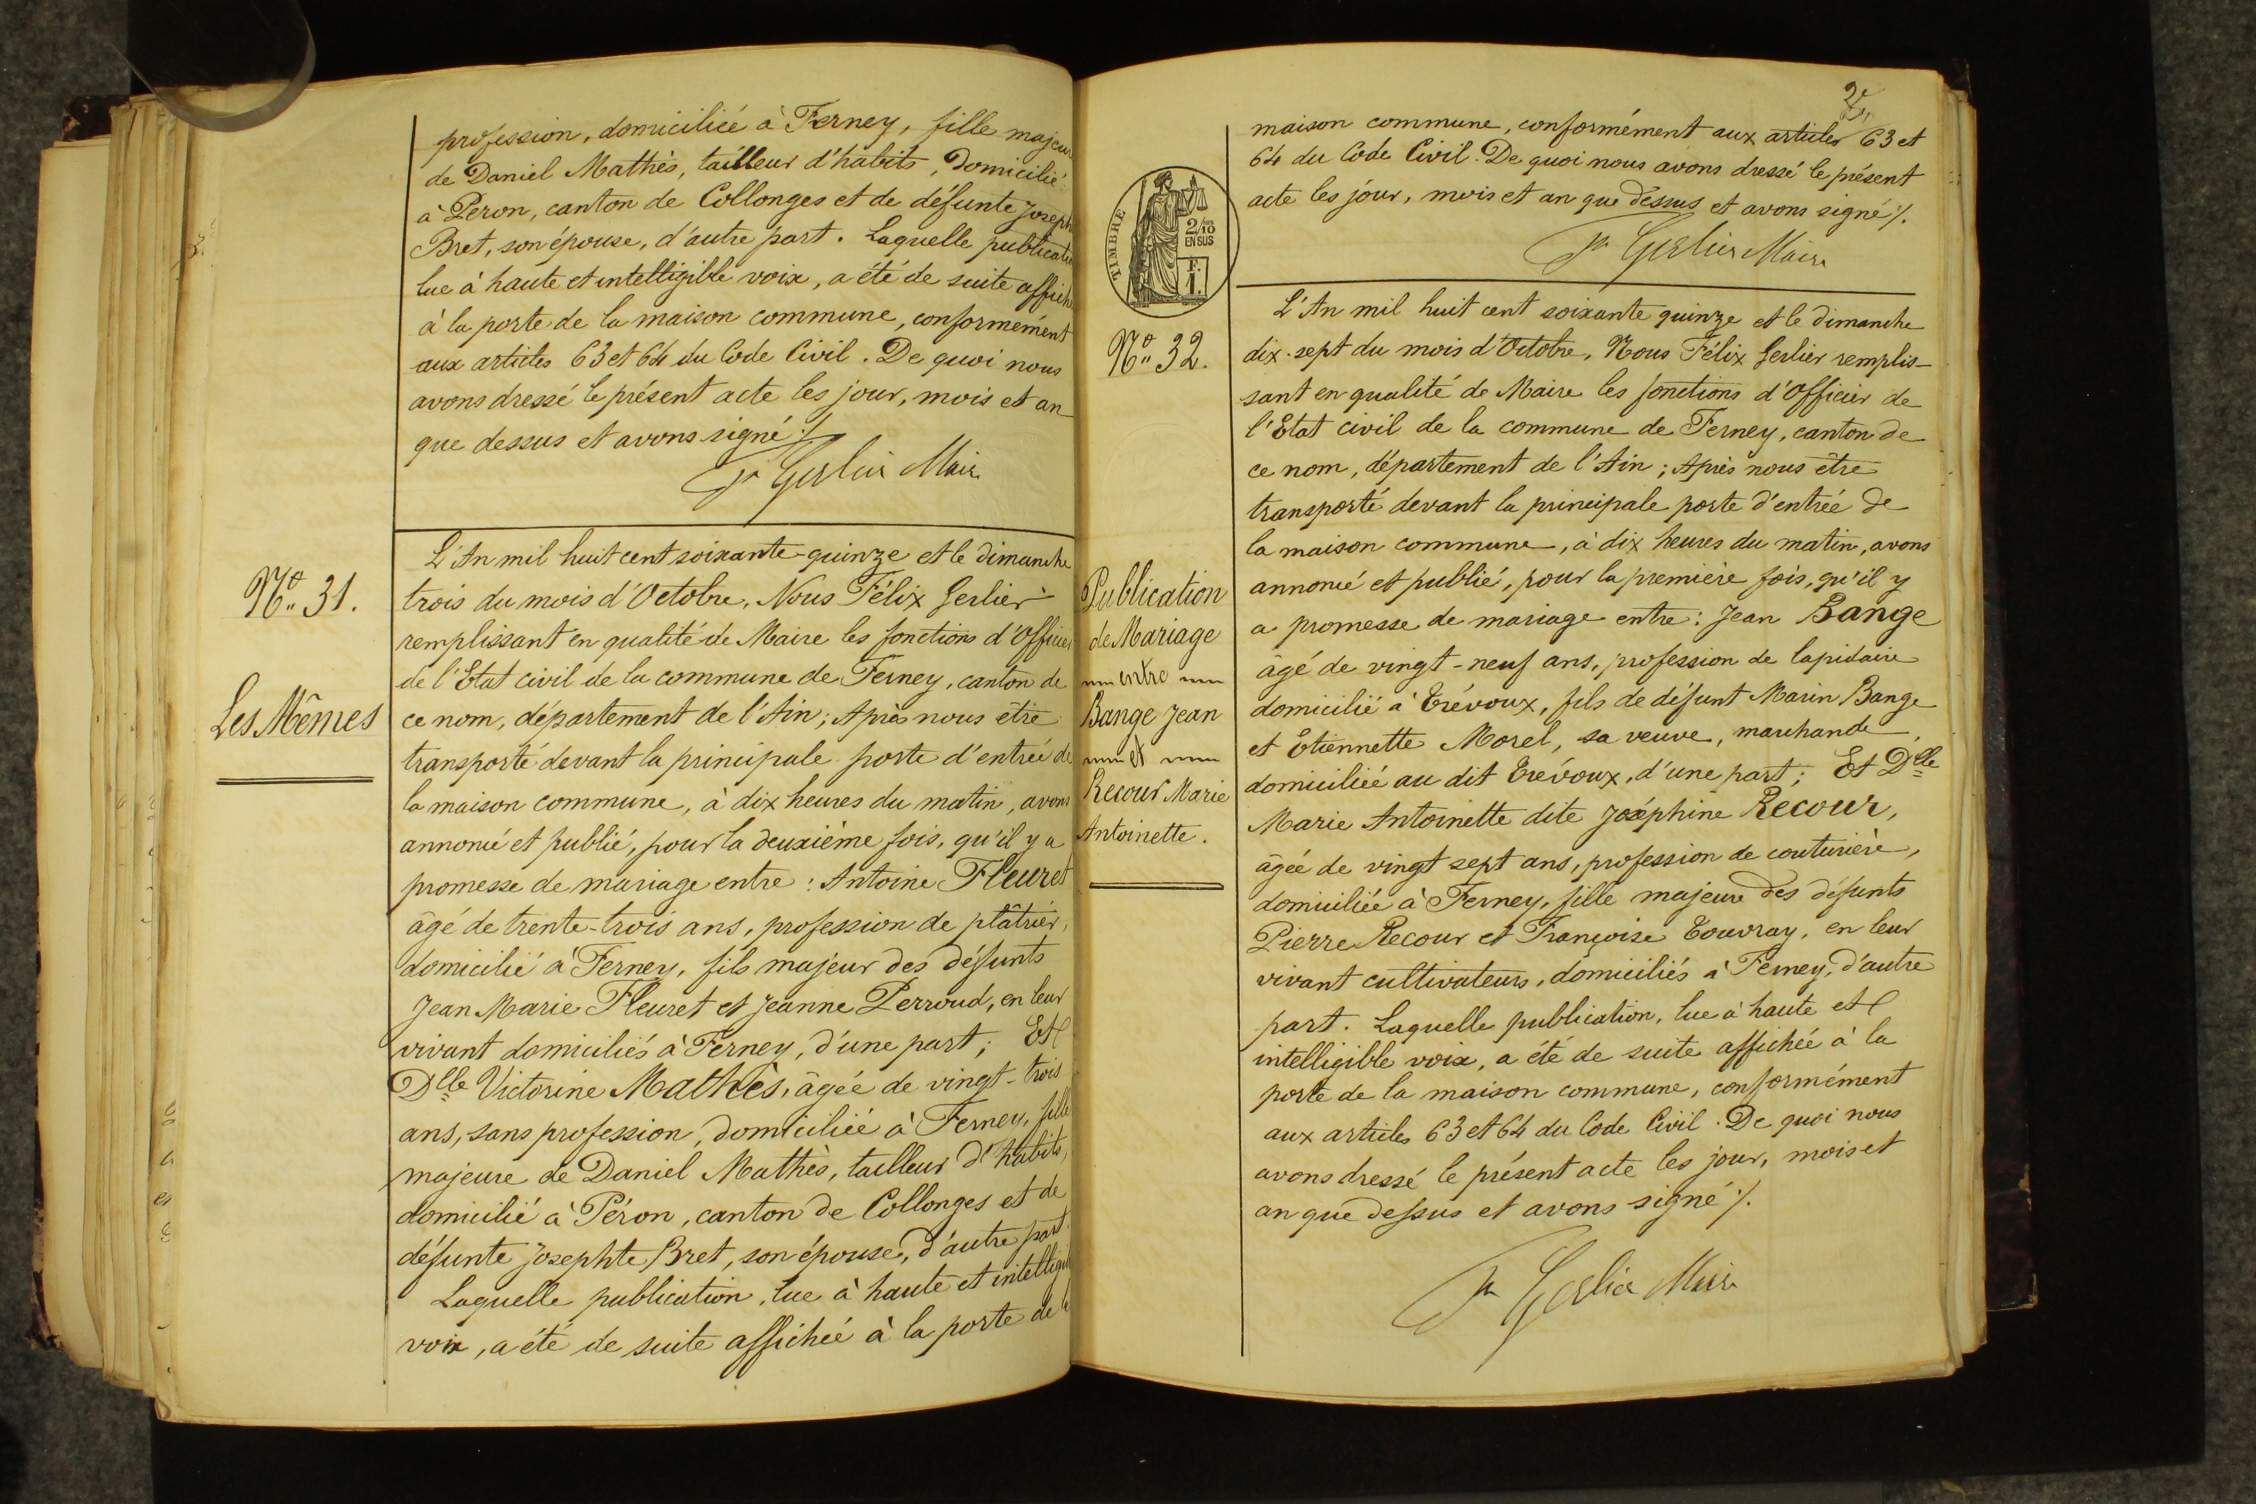 profession, domiciliée à Ferney, fille majeur
de Daniel Mathès, tailleur d'habits, domicilié
à Peron, canton de Collonges et de défunte Joseph
Bret, son épouse, d'autre part. Laquelle publicatio
lue à haute et intelligible voix, a été de suite affich
à la porte de la maison commune, conformément
aux articles 63 et 64 du Code Civil. De quoi nous
avons dressé le présent acte les jour, mois et an
que dessus et avons signé ./.
Gerlier Maire
No. 31.
Les Mêmes
L'An mil huit cent soixante-quinze et le dimanche
trois du mois d'Octobre, Nous Félix Gerlier
remplissant en qualité de Maire les fonctions d'Officier
de l'Etat civil de la commune de Ferney, canton de
ce nom, département de l'Ain; Après nous être
transporté devant la principale porte d'entrée de
la maison commune, à dix heures du matin, avons
annoncé et publié, pour la deuxième fois, qu'il y a
promesse de mariage entre : Antoine Fleuret
âgé de trente-trois ans, profession de plâtrier,
domicilié à Ferney, fils majeur des défunts
Jean Marie Fleuret et Jeanne Perroud, en leur
vivant domiciliés à Ferney, d'une part; Et
Dlle Victorine Mathès, âgée de vingt-trois
ans, sans profession, domiciliée à Ferney, fille
majeure de Daniel Mathès, tailleur d'habits,
domicilié à Péron, canton de Collonges et de
défunte Josephte Bret, son épouse, d'autre part.
Laquelle publication, lue à haute et intelligi
voix, a été de suite affichée à la porte de l
maison commune, conformément aux articles 63 et
64 du Code Civil. De quoi nous avons dressé le présent
acte les jour, mois et an que dessus et avons signé ./.
Gerlier Maire
TIMBRE
2/10
EN SUS
F.
1.
No. 32.
Publication
de Mariage
entre
Bange Jean
et
Recour Marie
Antoinette.
L'An mil huit cent soixante quinze et le dimanche
dix-sept du mois d'Octobre, Nous Félix Gerlier remplis-
sant en qualité de Maire les fonctions d'Officier de
l'Etat civil de la commune de Ferney, canton de
ce nom, département de l'Ain; Après nous être
transporté devant la principale porte d'entrée de
la maison commune, à dix heures du matin, avons
annoncé et publié, pour la première fois, qu'il y
a promesse de mariage entre : Jean Bange
âgé de vingt-neuf ans, profession de lapidaire
domicilié à Trévoux, fils de défunt Marin Bange
et Etiennette Morel, sa veuve, marchande,
domiciliée au dit Trévoux, d'une part; Et Dlle
Marie Antoinette dite Joséphine Recour,
âgée de vingt sept ans, profession de couturière,
domiciliée à Ferney, fille majeure des défunts
Pierre Recour et Françoise Touvray, en leur
vivant cultivateurs, domiciliés à Ferney, d'autre
part. Laquelle publication, lue à haute et
intelligible voix, a été de suite affichée à la
porte de la maison commune, conformément
aux articles 63 et 64 du Code Civil. De quoi nous
avons dressé le présent acte les jour, mois et
an que dessus et avons signé ./.
Gerlier Maire